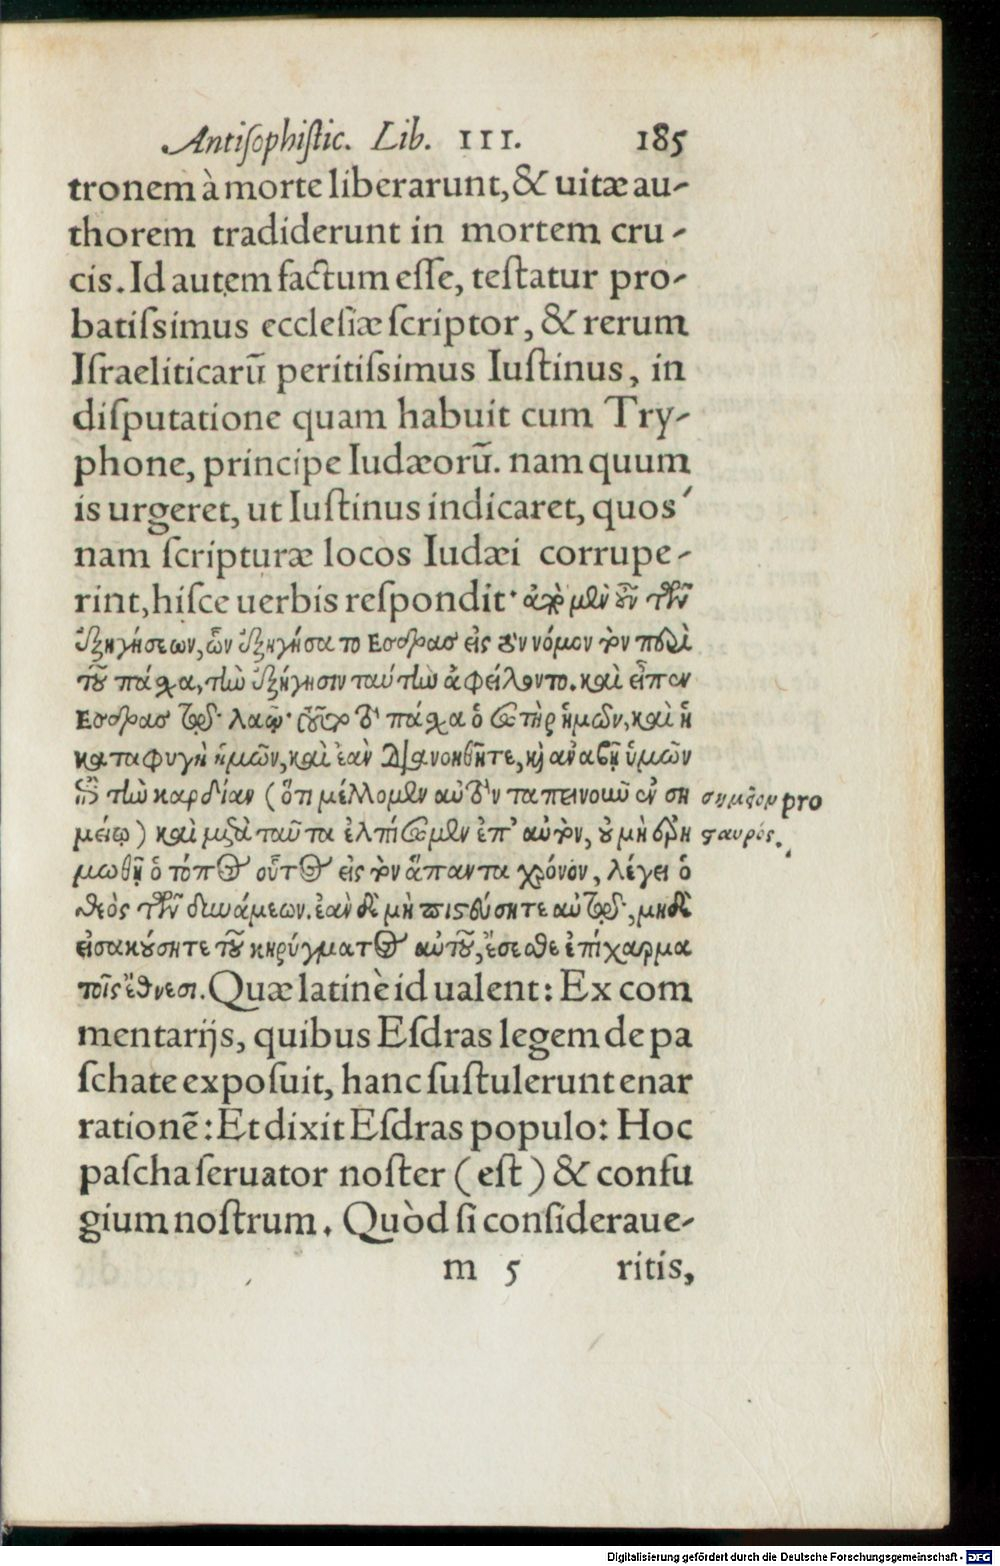 Antiſophiſtic. Lib. III. 185
tronem à morte liberarunt, & uitæ au-
thorem tradiderunt in mortem cru-
cis. Id autem factum eſſe, teſtatur pro-
batiſsimus eccleſiæ ſcriptor, & rerum
Iſraeliticarũ peritiſsimus Iuſtinus, in
diſputatione quam habuit cum Try-
phone, principe Iudæorũ. nam quum
is urgeret, ut Iuſtinus indicaret, quos
nam ſcripturæ locos Iudæi corrupe-
rint, hiſce uerbis reſpondit· ἀπὸ μὲν οὖν τῶν
ἐξηγήσεων, ὧν ἐξηγήσατο Εσδρας εἰς τὸν νόμον τὸν περὶ
τοῦ πάσχα, τὴν ἐξήγησιν ταύτην ἀφείλοντο. καὶ εἶπεν
Εσδρας τῷ λαῷ· τοῦτο τὸ πάσχα ὁ σωτὴρ ἡμῶν, καὶ ἡ
καταφυγὴ ἡμῶν, καὶ ἐὰν διανοηθῆτε, καὶ ἀναβῇ ὑμῶν
ἐπὶ τὴν καρδίαν (ὅτι μέλλομεν αὐτὸν ταπεινοῦν ἐν ση
σημεῖον pro
μείῳ) καὶ μετὰ ταῦτα ἐλπίσωμεν ἐπ’ αὐτὸν, οὐ μὴ ἐρη
σαυρός.
μωθῇ ὁ τόπος οὗτος εἰς τὸν ἅπαντα χρόνον, λέγει ὁ
θεὸς τῶν δυνάμεων. ἐὰν δὲ μὴ πιστεύσητε αὐτῷ, μηδὲ
εἰσακούσητε τοῦ κηρύγματος αὐτοῦ, ἔσεσθε ἐπίχαρμα
τοῖς ἔθνεσι. Quæ latinè id ualent: Ex com
mentarijs, quibus Eſdras legem de pa
ſchate expoſuit, hanc ſuſtulerunt enar
rationẽ: Et dixit Eſdras populo: Hoc
paſcha ſeruator noſter (eſt) & confu
gium noſtrum. Quòd ſi conſideraue-
m 5 ritis,
Digitalisierung gefördert durch die Deutsche Forschungsgemeinschaft - DFG